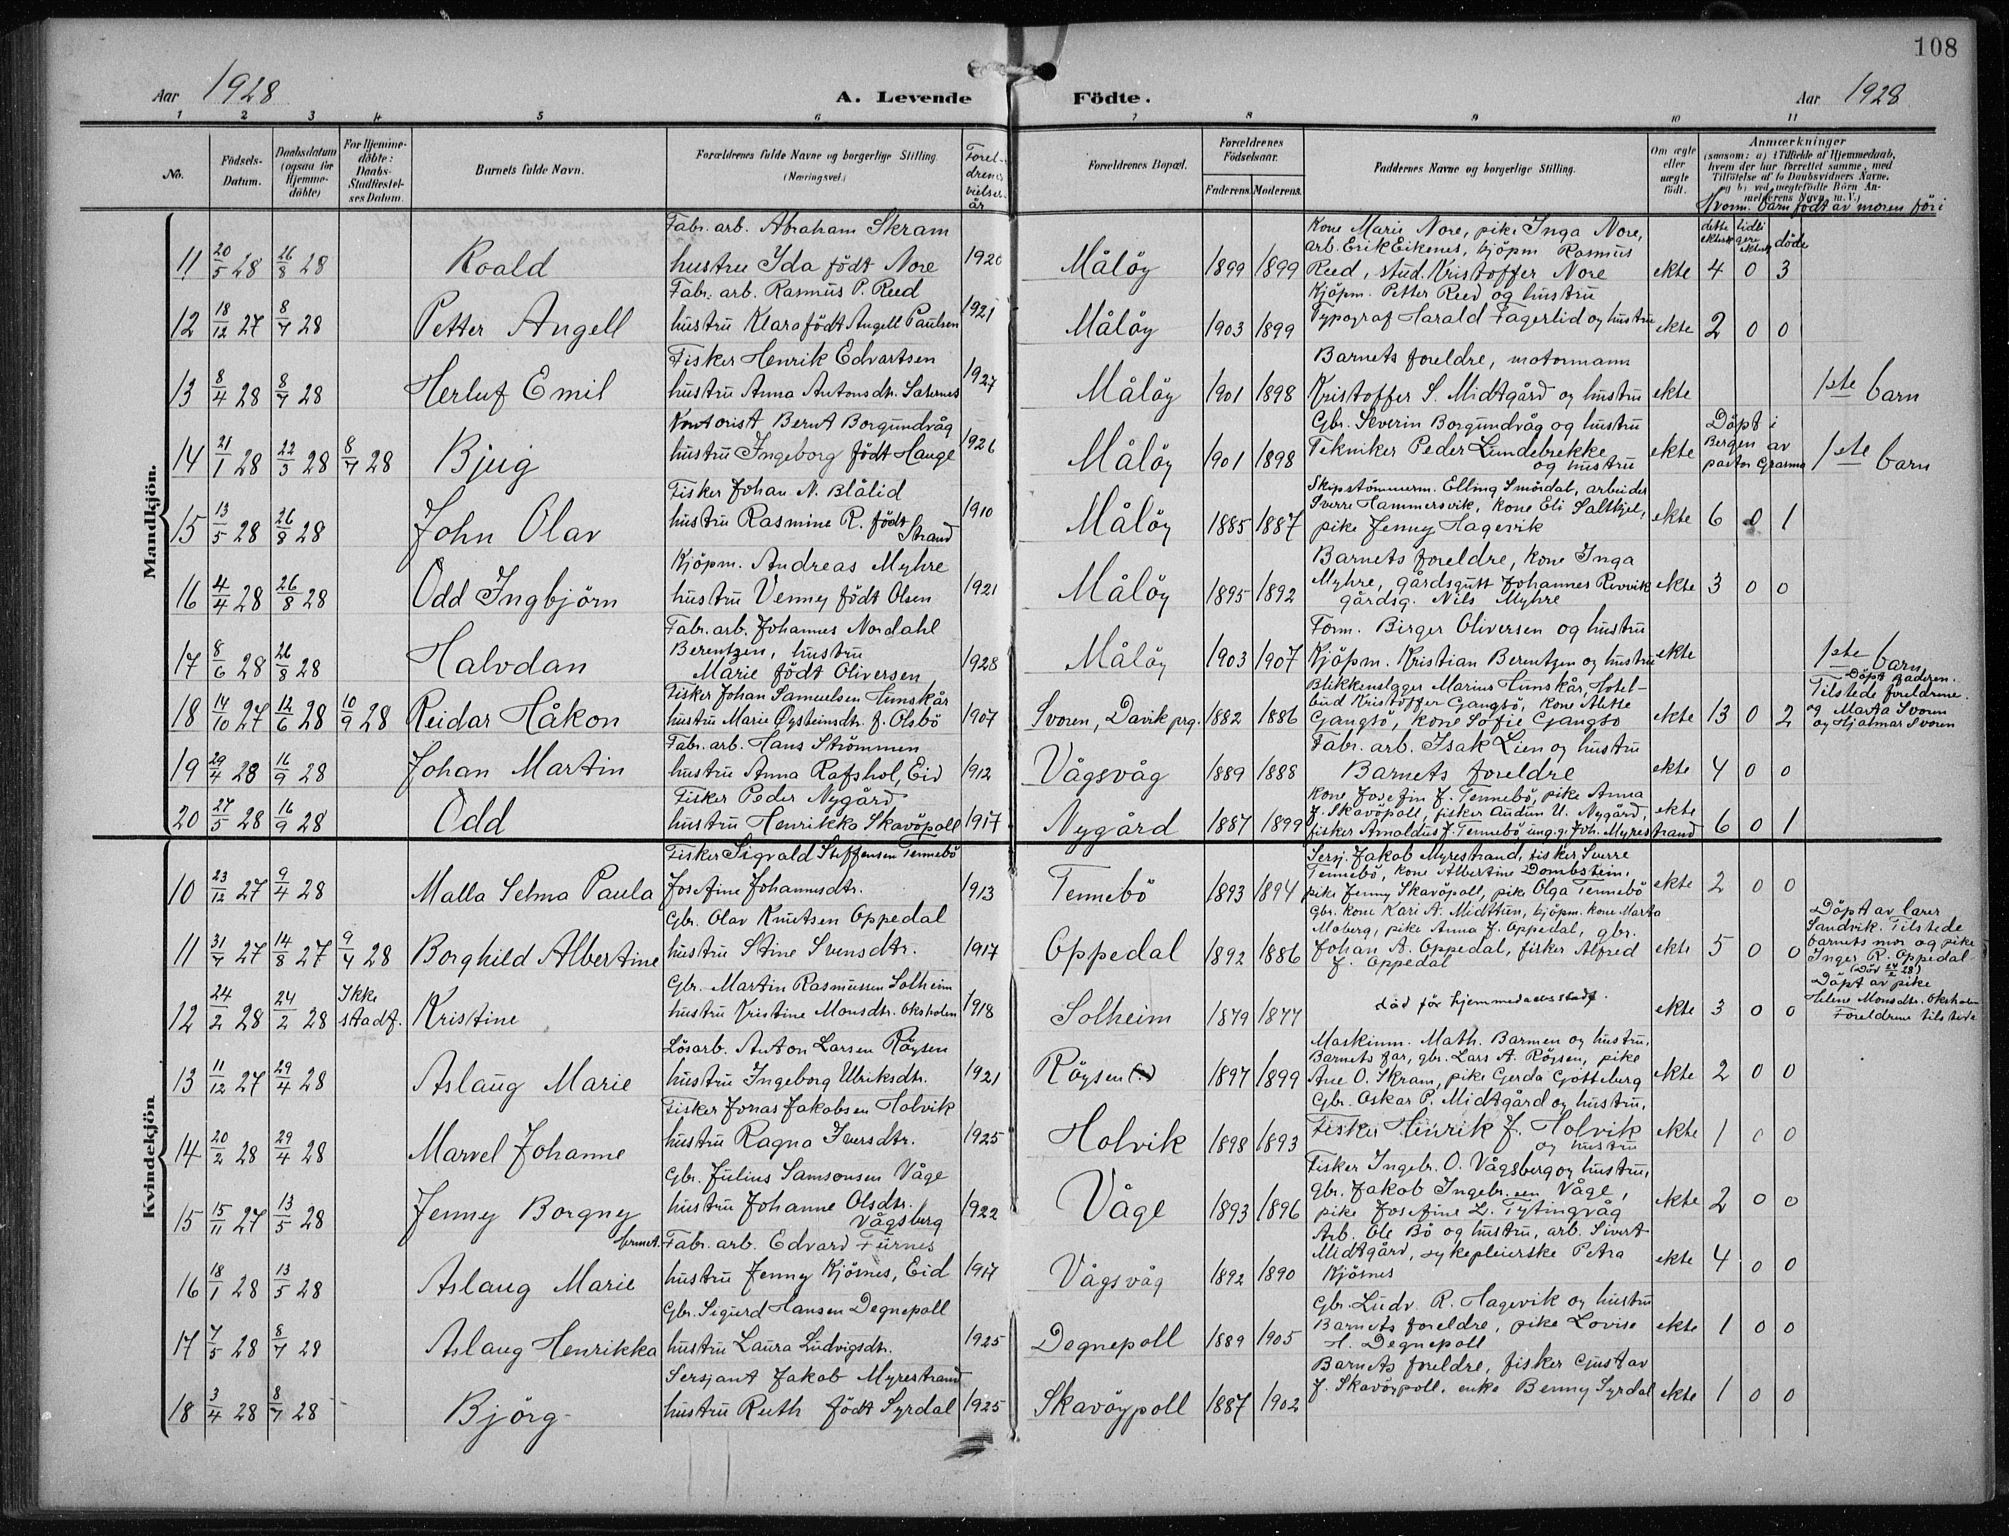 108
Aar 1928 A. Levende Födte. Aar 1928
1 2 3 4 5 6 7 8 9 10 11
No. Födsels-Datum. Daabsdatum (ogsaa for Hjemmedöbte) For Hjemmedöbte: Daabs-Stadfæstelses Datum. Barnets fulde Navn. Forældrenes fulde Navne og borgerlige Stilling. (Næringsvei.) Foreldrenes vielsesår Forældrenes Bopæl. Forældrenes Födselsaar. Faderens. Moderens. Faddernes Navne og borgerlige Stilling. Om ægte eller uægte födt. Anmærkninger
(saasom: a) i Tilfælde af Hjemmedaab, hvem der har forrettet samme, med Tilföielse af to Daabsvidners Navne, og b) ved uægtefödte Börn Anmelderens Navn m. V.)
Hvorm. barn födt av moren för i
dette ektesk. tidligere ektesk. döde
Mandkjön.
11 20/5 28 26/8 28 Roald Fabr. arb. Abraham Skram hustru Ida födt Nore 1920 Målöy 1899 1899 Kone Marie Nore, pike Inga Nore, arb. Erik Eikenes, kjöpm Rasmus Reed, stud. Kristoffer Nore ekte 4 0 3
12 18/12 27 8/7 28 Petter Angell Fabr. arb. Rasmus P. Reed hustru Klara födt Angell Paulsen 1921 Målöy 1903 1899 Kjöpm. Petter Reed og hustru Typograf Harald Fagerlid og hustru ekte 2 0 0
13 8/4 28 8/7 28 Herluf Emil Fisker Henrik Edvartsen hustru Anna Antonsdtr. Saternes 1927 Målöy 1901 1898 Barnets foreldre, motormann Kristoffer S. Midtgård og hustru ekte 1ste barn
14 21/1 28 22/3 28 8/7 28 Bjug Kontorist Bernt Borgundvåg hustru Ingeborg födt Hauge 1926 Målöy 1901 1898 Gbr. Severin Borgundvåg og hustru Tekniker Peder Lundebrekke og hustru ekte Döpt i Bergen av pastor 1ste barn
15 13/5 28 26/8 28 John Olav Fisker Johan N. Blålid hustru Rasmine R. födt Strand 1910 Målöy 1885 1887 Skipstömmerm. Elling Smördal, arbeider Sverre Hammersvik, kone Eli Saltkjel, pike Jenny Hagevik ekte 6 0 1
16 4/4 28 26/8 28 Odd Ingbjörn Kjöpm. Andreas Myhre hustru Venny födt Olsen 1921 Målöy 1895 1892 Barnets foreldre, kone Inga Myhre, gårdsgutt Johannes Revvik gårdsg. Nils Myhre ekte 3 0 0
17 8/6 28 26/8 28 Halvdan Fabr. arb. Johannes Nordahl Berentzen, hustru Marie födt Oliversen 1928 Målöy 1903 1907 Form. Birger Oliversen og hustru Kjöpm. Kristian Berentzen og hustru ekte 1ste barn
18 14/10 27 12/6 28 10/9 28 Reidar Håkon Fisker Johan Samuelsen Hunskår hustru Marie Øysteinsdtr. f. Olsbö 1907 Svoren, Davik prg. 1882 1886 Blikkenslager Marius Hunskår, Hotelbud Kristoffer Gangsö, kone Mette Gangsö, kone Sofie Gangsö ekte 13 0 2 Döpt faderen. Tilstede foreldrene og Marta Svoren og Hjalmar Svoren
19 29/4 28 16/9 28 Johan Martin Fabr. arb. Hans Strömmen hustru Anna Rafshol, Eid 1912 Vågsvåg 1889 1888 Fabr. arb. Isak Lien og hustru Barnets foreldre ekte 4 0 0
20 27/5 28 16/9 28 Odd Fisker Peder Nygård hustru Henrikka Skavöpoll 1917 Nygård 1887 1899 Kone Josefin J. Tennebö, pike Anna J. Skavöpoll, fisker Audun U. Nygård, fisker Arnoldus J. Tennebö ung.g. Joh. Myrestrand ekte 6 0 1
Kvindekjön
10 23/12 27 9/4 28 Malla Selma Paula Fisker Sigvald Steffensen Tennebö Josefine Johannesdtr. 1913 Tennebö 1893 1894 Sersj. Jakob Myrestrand, fisker Sverre Tennebö, kone Albertine Dombstein, pike Jenny Skavöpoll, pike Olga Tennebö ekte 2 0 0
11 31/7 27 14/8 27 9/4 28 Borghild Albertine Gbr. Olav Knutsen Oppedal hustru Stine Svensdtr. 1917 Oppedal 1892 1886 Gbr. kone Kari A. Midttun, kjöpm. kone Marta Moberg, pike Anna J. Oppedal, gbr. Johan A. Oppedal, fisker Alfred J. Oppedal ekte 5 0 0 Döpt av lærer Sandvik. Tilstede barnets mor og pike Inger R. Oppedal
12 24/2 28 24/2 28 Ikke stadf. Kristine Gbr. Martin Rasmussen Solheim hustru Kristine Monsdtr. Oksholm 1918 Solheim 1879 1877 död för hjemmedaabsstadf. ekte 3 0 0 (Död 24/2 28) Döpt av pike Helene Monsdtr. Oksholm Foreldrene tilstede
13 11/12 27 29/4 28 Aslaug Marie Lösarb. Anton Larsen Röysen hustru Ingeborg Ulriksdtr. 1921 Röysen 1897 1899 Maskinm. Math. Barmen og hustru, Barnets far, gbr. Lars A. Röysen, pike Ane O. Skram, pike Gerda Gotteberg ekte 2 0 0
14 20/2 28 29/4 28 Marvel Johanne Fisker Jonas Jakobsen Holvik hustru Ragna Iversdtr. 1925 Holvik 1898 1893 Gbr. Oskar P. Midtgård og hustru, Fisker Henrik J. Holvik og hustru ekte 1 0 0
15 15/11 27 13/5 28 Jenny Borgny Gbr. Julius Samsonsen Våge hustru Johanne Olsdtr. Vågsberg 1922 Våge 1893 1896 Fisker Ingebr. O. Vågsberg og hustru, gbr. Jakob Ingebr.sen Våge, pike Josefine L. Tytingvåg ekte 2 0 0
16 18/1 28 13/5 28 Aslaug Marie Fabr. arb. Edvard Furnes hustru Jenny Kjösnes, Eid 1917 Vågsvåg 1892 1890 Arb. Ole Bö og hustru, arb. Sivert Midtgård, sykepleierske Petra Kjösnes ekte 4 0 0
17 7/5 28 8/7 28 Aslaug Henrikka Gbr. Sigurd Hansen Degnepoll hustru Laura Ludvigsdtr. 1925 Degnepoll 1889 1905 Gbr. Ludv. R. Hagevik og hustru Barnets foreldre, pike Lovise H. Degnepoll ekte 1 0 0
18 3/4 28 8/7 28 Björg Sersjant Jakob Myrestrand hustru Ruth födt Syrdal 1925 Skavöypoll 1887 1902 Barnets foreldre, fisker Gustav J. Skavöypoll, enke Benny Syrdal ekte 1 0 0